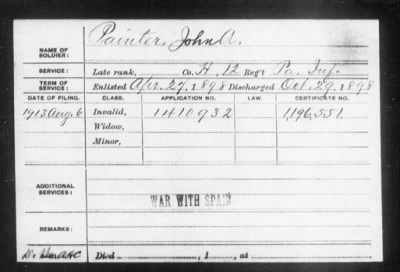 NAME OF SOLDIER: Painter, John A.
SERVICE: Late rank, Co. H, 12 Reg't Pa. Inf.
TERM OF SERVICE: Enlisted Apr. 27, 1898 Discharged Oct. 29, 1898
DATE OF FILING. CLASS. APPLICATION NO. LAW. CERTIFICATE NO.
1913 Aug. 6 Invalid, 1410932 1,196,551.
Widow,
Minor,
ADDITIONAL SERVICES:
WAR WITH SPAIN
REMARKS:
Died , 1 , at